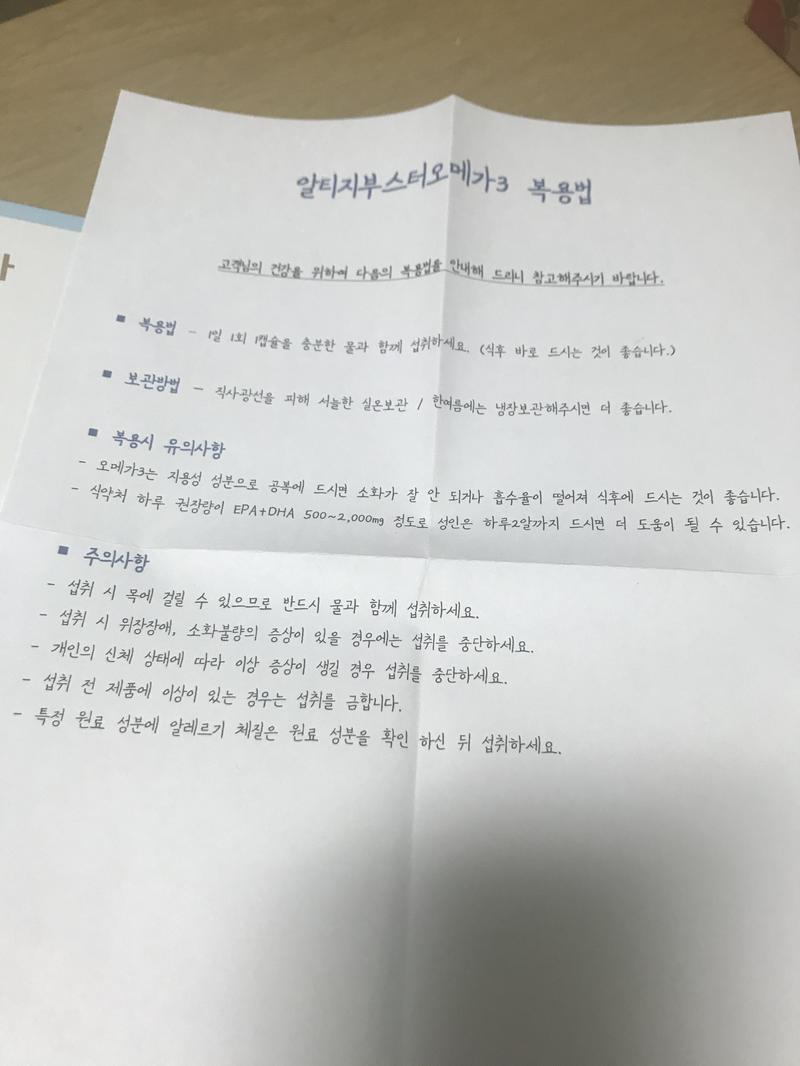 알티지부스터오메가3 복용법
고객님의 건강을 위하여 다음의 복용법을 안내해 드리니 참고해주시기 바랍니다.
■ 복용법 - 1일 1회 1캡슐을 충분한 물과 함께 섭취하세요. (식후 바로 드시는 것이 좋습니다.)
■ 보관방법 - 직사광선을 피해 서늘한 실온보관 / 한여름에는 냉장보관해주시면 더 좋습니다.
■ 복용시 유의사항
- 오메가3는 지용성 성분으로 공복에 드시면 소화가 잘 안 되거나 흡수율이 떨어져 식후에 드시는 것이 좋습니다.
- 식약처 하루 권장량이 EPA+DHA 500~2,000mg 정도로 성인은 하루2알까지 드시면 더 도움이 될 수 있습니다.
■ 주의사항
- 섭취 시 목에 걸릴 수 있으므로 반드시 물과 함께 섭취하세요.
- 섭취 시 위장장애, 소화불량의 증상이 있을 경우에는 섭취를 중단하세요.
- 개인의 신체 상태에 따라 이상 증상이 생길 경우 섭취를 중단하세요.
- 섭취 전 제품에 이상이 있는 경우는 섭취를 금합니다.
- 특정 원료 성분에 알레르기 체질은 원료 성분을 확인 하신 뒤 섭취하세요.